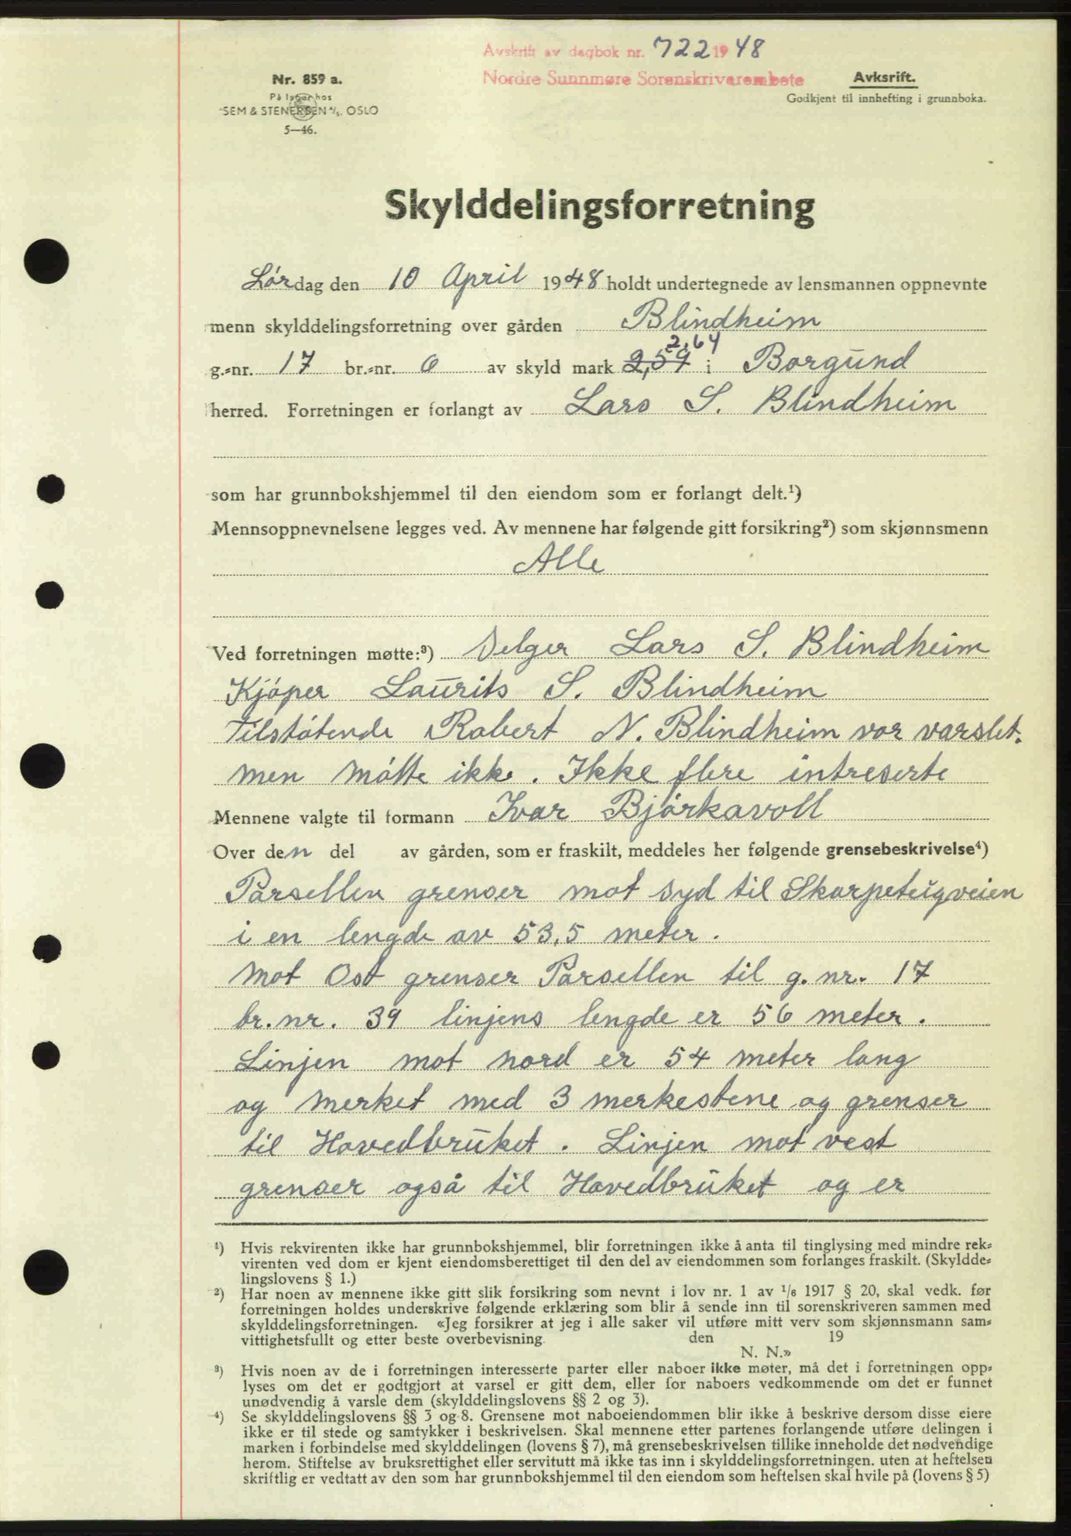 Avskrift av dagbok nr. 722 1948
Nordre Sunnmøre Sorenskriverembete
Nr. 859 a.
På lager hos
SEM & STENERSEN A/S. OSLO
5—46.
Avksrift.
Godkjent til innhefting i grunnboka.
Skylddelingsforretning
Lørdag den 10 April 1948 holdt undertegnede av lensmannen oppnevnte
menn skylddelingsforretning over gården Blindheim
2,64
g.-nr. 17 br.-nr. 6 av skyld mark 2,59 i Borgund
herred. Forretningen er forlangt av Lars S. Blindheim
som har grunnbokshjemmel til den eiendom som er forlangt delt.¹)
Mennsoppnevnelsene legges ved. Av mennene har følgende gitt forsikring²) som skjønnsmenn
Alle
Ved forretningen møtte:³) Selger Lars S. Blindheim
Kjøper Laurits S. Blindheim
Tilstøtende Robert N. Blindheim var varslet.
men møtte ikke. Ikke flere intreserte
Mennene valgte til formann Ivar Bjørkavoll
Over den del av gården, som er fraskilt, meddeles her følgende grensebeskrivelse⁴)
Parsellen grenser mot syd til Skarpeteigveien
i en lengde av 53,5 meter.
Mot Ost grenser Parsellen til g. nr. 17
br. nr. 39 linjens lengde er 56 meter.
Linjen mot nord er 54 meter lang
og merket med 3 merkestene og grenser
til Hovedbruket. Linjen mot vest
grenser også til Hovedbruket og er
¹) Hvis rekvirenten ikke har grunnbokshjemmel, blir forretningen ikke å anta til tinglysing med mindre rek-
virenten ved dom er kjent eiendomsberettiget til den del av eiendommen som forlanges fraskilt. (Skyldde-
lingslovens § 1.)
²) Har noen av mennene ikke gitt slik forsikring som nevnt i lov nr. 1 av 1/6 1917 § 20, skal vedk. før
forretningen holdes underskrive følgende erklæring som blir å sende inn til sorenskriveren sammen med
skylddelingsforretningen. «Jeg forsikrer at jeg i alle saker vil utføre mitt verv som skjønnsmann sam-
vittighetsfullt og etter beste overbevisning. den 19
N. N.»
³) Hvis noen av de i forretningen interesserte parter eller naboer ikke møter, må det i forretningen opp-
lyses om det er godtgjort at varsel er gitt dem, eller for naboers vedkommende om det er funnet
unødvendig å varsle dem (skylddelingslovens §§ 2 og 3).
⁴) Se skylddelingslovens §§ 3 og 8. Grensene mot naboeiendommen blir ikke å beskrive dersom disse eiere
ikke er til stede og samtykker i beskrivelsen. Skal mennene etter partenes forlangende utføre delingen i
marken i forbindelse med skylddelingen (lovens § 7), må grensebeskrivelsen tillike inneholde det nødvendige
herom. Stiftelse av bruksrettighet eller servitutt må ikke tas inn i skylddelingsforretningen. uten at heftelsen
skriftlig er vedtatt av den som har grunnbokshjemmel til den eiendom som heftelsen skal hvile på (lovens § 5)